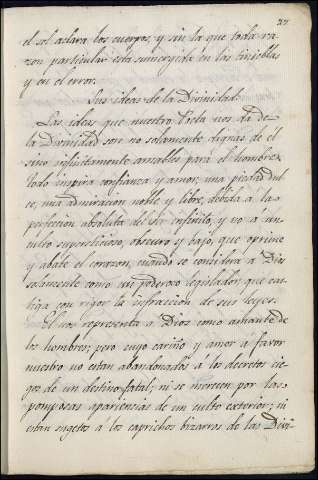 27
el sol aclara los cuerpos, y sin la que toda ra-
zon particular esta sumergida en las tinieblas
y en el error.
Sus ideas de la Divinidad.
Las ideas que nuestro Poeta nos da de
la Divinidad son no solamente dignas de el
sino infinitamente amables para el hombre.
Todo inspira confianza y amor; una piedad dul
ce, una admiracion noble y libre, debida à la
perfeccion absoluta del ser infinito, y no a un
culto supersticioso, obscuro y bajo, que oprime
y abate el corazon, cuando se considera a Dios
solamente como un poderoso legislador que cas-
tiga con rigor la infraccion de sus leyes.
El nos representa a Dios como amante de
los hombres; pero cuyo cariño y amor à favor
nuestro no estan abandonados à los decretos cie-
gos de un destino fatal; ni se merecen por las
pomposas apariencias de un culto exterior; ni
estan sugetos à los caprichos bizarros de las Divi-